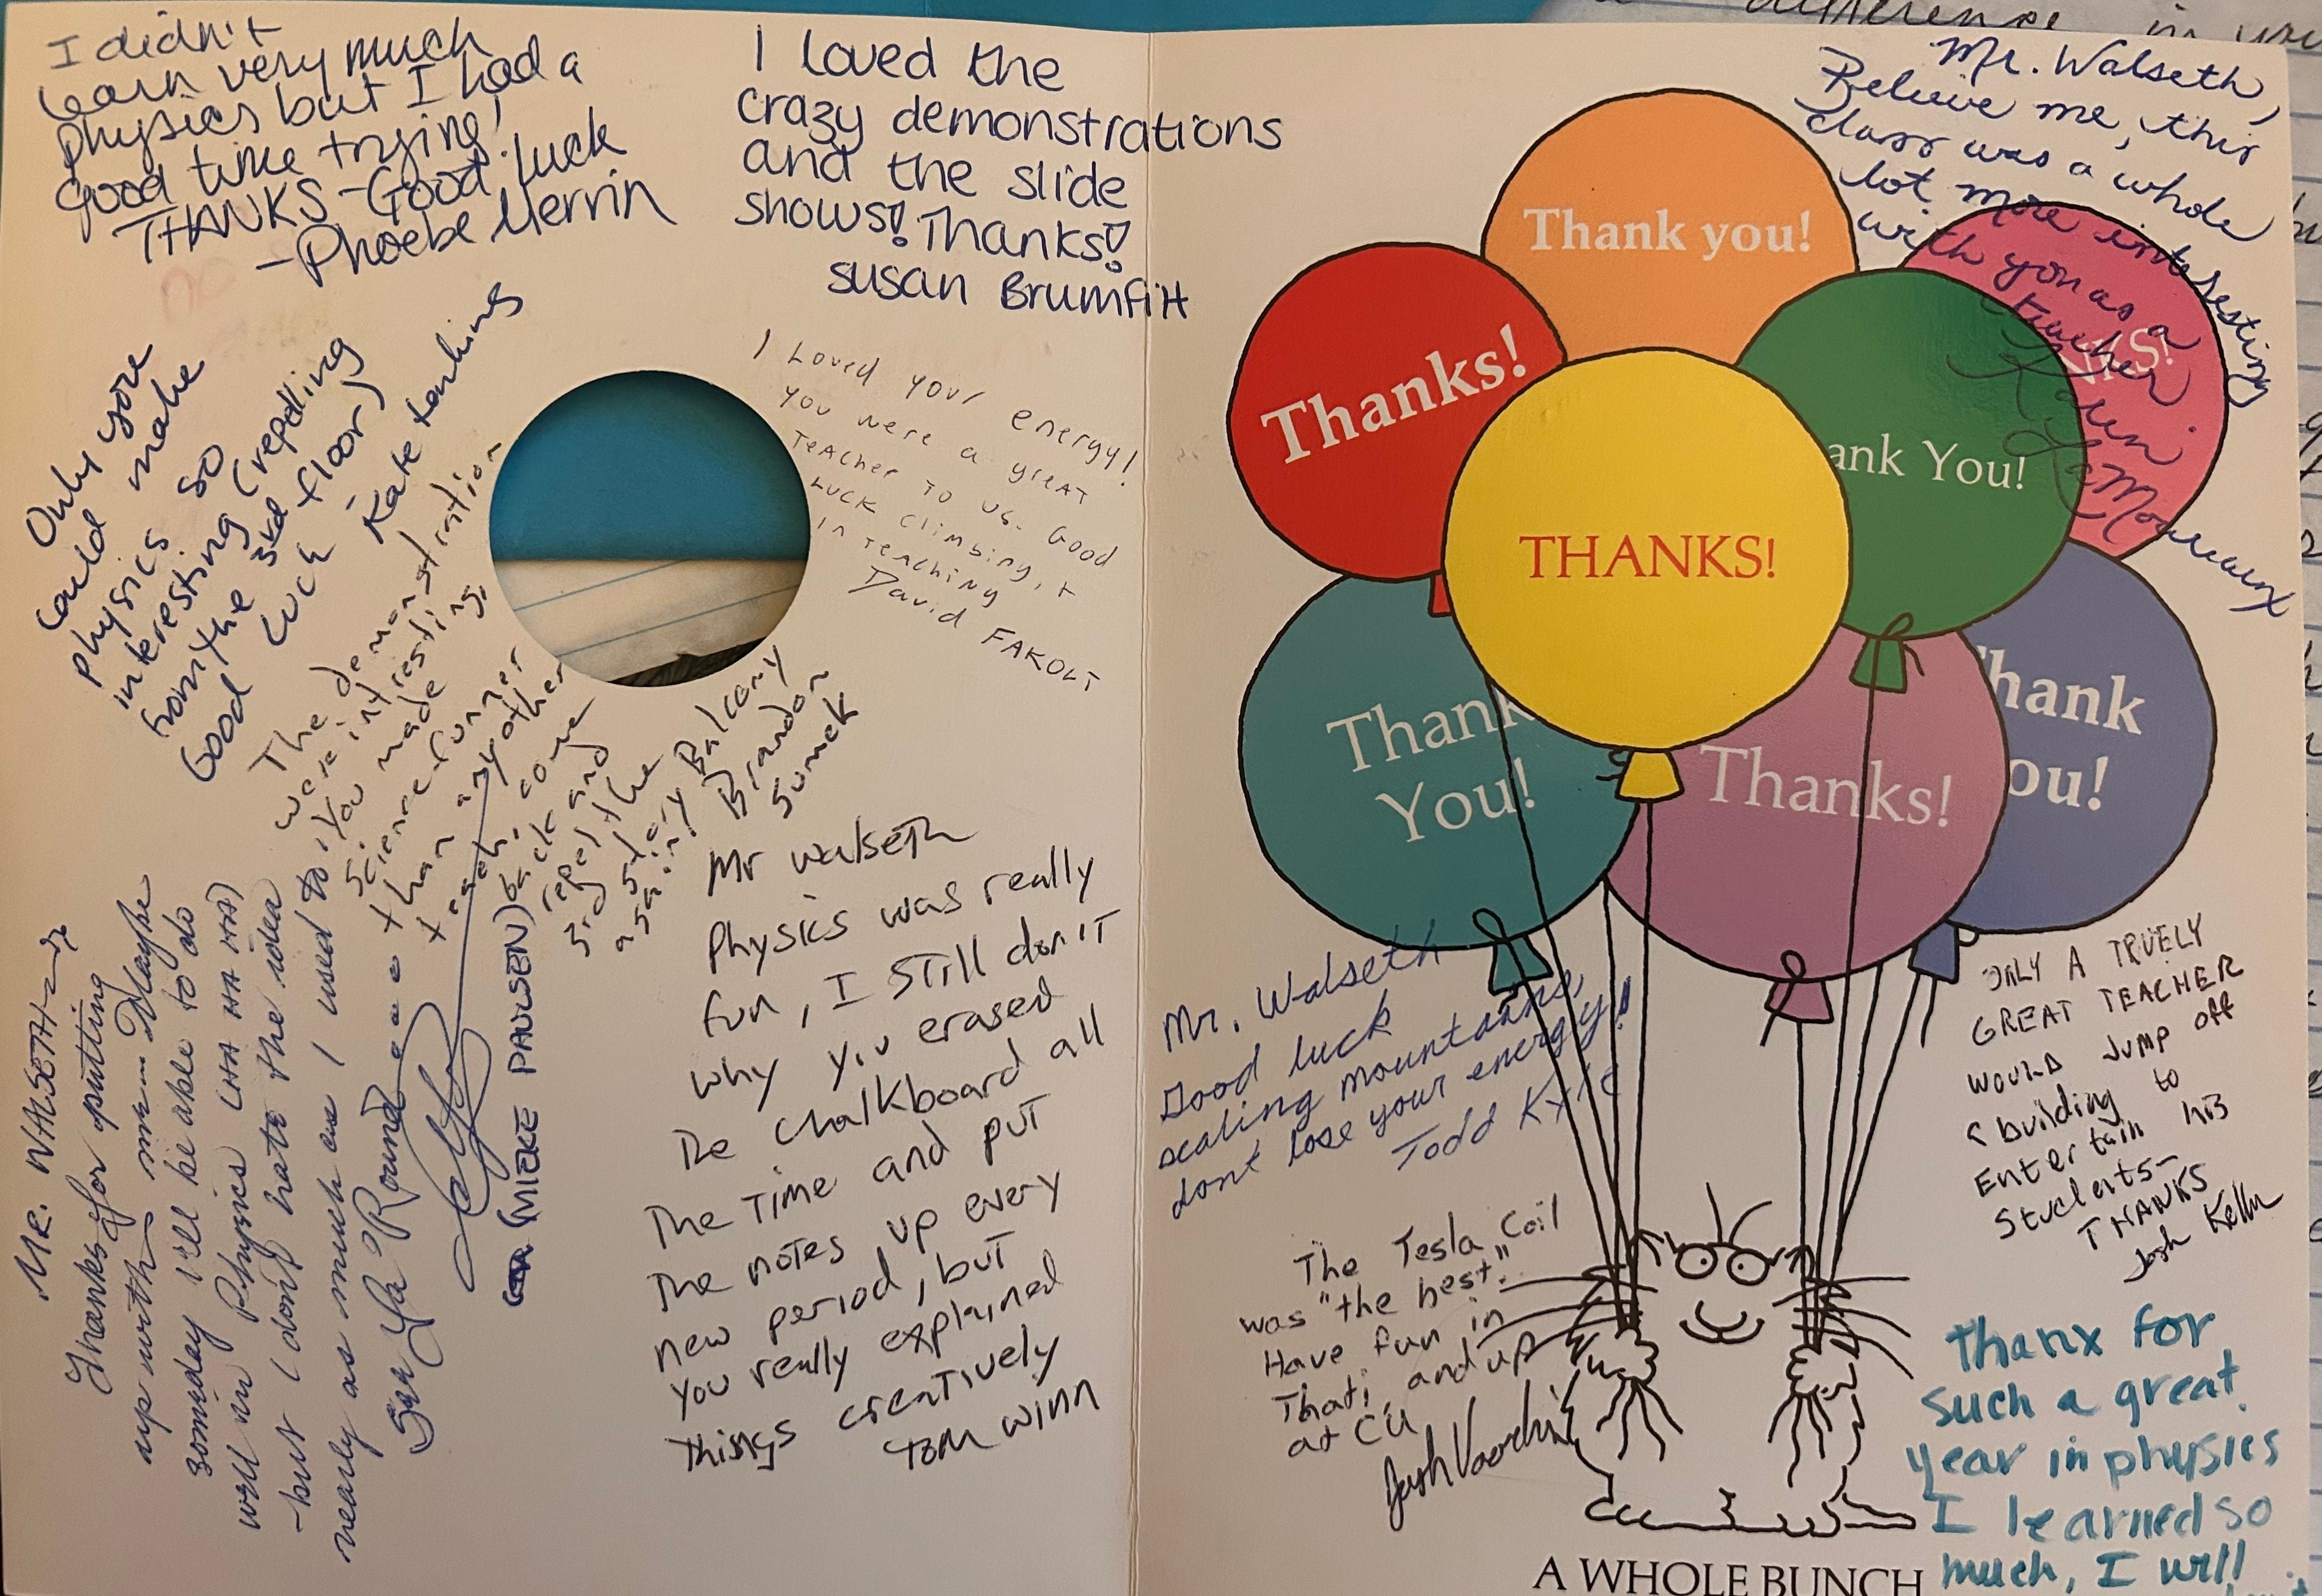 I didn't
learn very much
physics but I had a
good time trying!
THANKS - Good luck
- Phoebe Merrin
I loved the
crazy demonstrations
and the slide
shows! Thanks!
Susan Brumfitt
Only you
could make
physics so
interesting (repelling
from the 3rd floor)
Good luck
- Kate
I Loved your energy!
you were a great
Teacher to us. Good
Luck climbing, +
in teaching
David FAKOLT
The demonstration
were intresting.
You made
science funner
than any other
teach, come
back and
repel the
3rd story Balcony
again! Brandon
Sumek
Mr Walseth
Physics was really
fun, I still don't
why you erased
The chalkboard all
The Time and put
The notes up every
new period, but
you really explained
things creatively
Tom Winn
Mr. WALSETH
Thanks for putting
up with me. Maybe
someday I'll be able to do
well in Physics (HA HA HA)
-but I don't hate the idea
nearly as much as I used to!
See Ya 'Round
(MIEKE PAULSEN)
Mr. Walseth,
Believe me, this
class was a whole
lot more interesting
with you as a
teacher
Thank you!
Thanks!
NKS!
ank You!
THANKS!
Thank
You!
Thanks!
hank
ou!
Mr. Walseth
Good luck
scaling mountains,
dont lose your energy!
Todd Kyle
ONLY A TRUELY
GREAT TEACHER
WOULD JUMP off
a building to
Entertain his
Students-
THANKS
Josh Keller
The Tesla Coil
was "the best."
Have fun in
That, and up
at CU
Josh
thanx for
such a great
year in physics
I learned so
much, I will
A WHOLE BUNCH